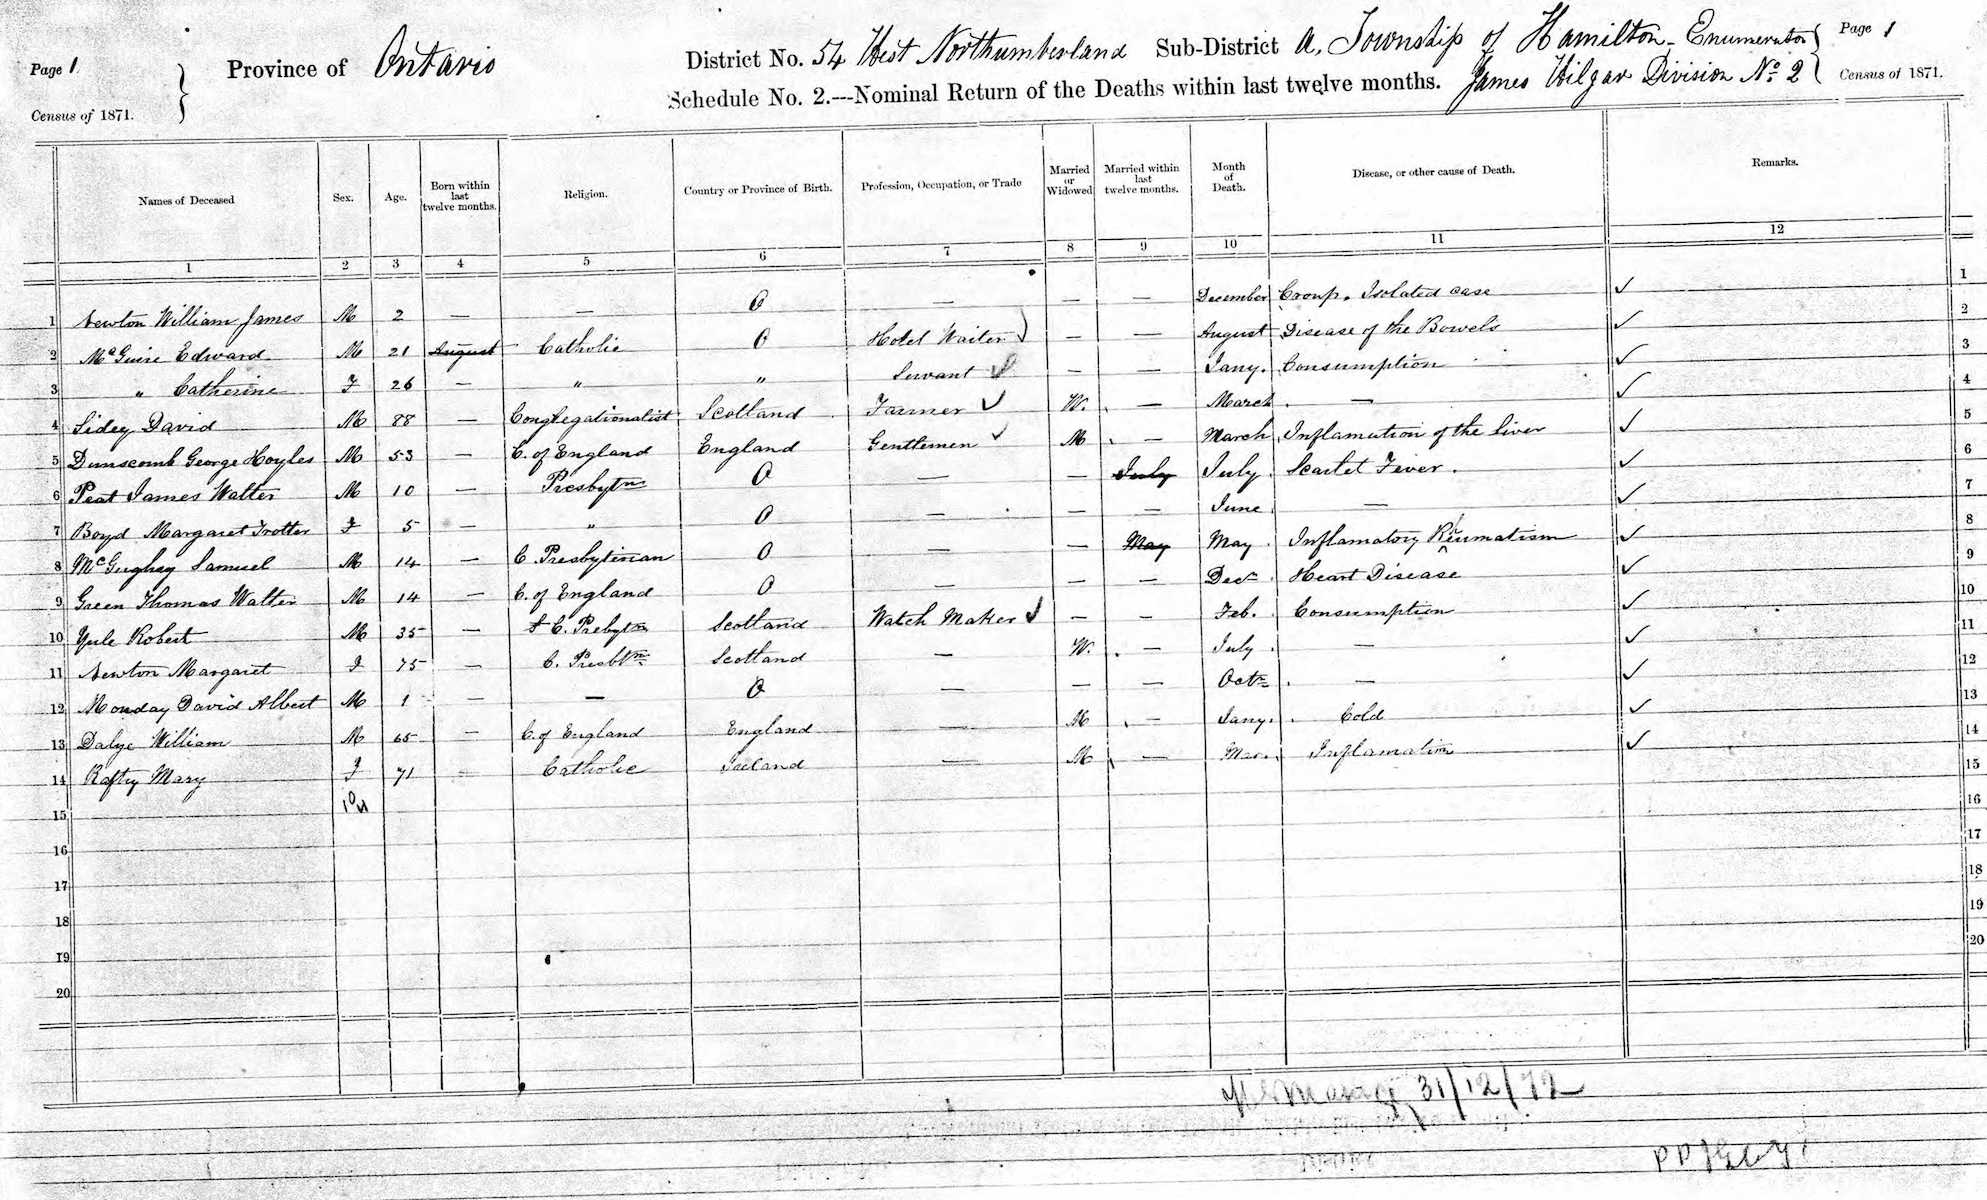 Page 1
Census of 1871.
Province of Ontario
District No. 54 West Northumberland Sub-District A. Township of Hamilton - Enumerator
Schedule No. 2.---Nominal Return of the Deaths within last twelve months. James Wilgar Division No. 2
Page 1
Census of 1871.
Names of Deceased Sex. Age. Born within last twelve months. Religion. Country or Province of Birth. Profession, Occupation, or Trade Married or Widowed Married within last twelve months. Month of Death. Disease, or other cause of Death. Remarks.
1 2 3 4 5 6 7 8 9 10 11 12
1 Newton William James M 2 — — O — — — December Croup. Isolated case ✓ 1
2 McGuire Edward M 21 August Catholic O Hotel Waiter ✓ — August Disease of the Bowels ✓ 2
3 " Catherine F 26 — " " Servant ✓ — — Jany. Consumption ✓ 3
4 Sidey David M 88 — Congregationalist Scotland Farmer ✓ W. — March — ✓ 4
5 Dunscomb George Hoyles M 53 — C. of England England Gentlemen ✓ M — March Inflamation of the liver ✓ 5
6 Peat James Walter M 10 — Presbytn O — — July July Scarlet Fever. ✓ 6
7 Boyd Margaret Trotter F 5 — " O — — — June — ✓ 7
8 McGughay Samuel M 14 — C. Presbyterian O — — May May Inflamatory Rheumatism ✓ 8
9 Green Thomas Walter M 14 — C. of England O — — — Decr Heart Disease ✓ 9
10 Yule Robert M 35 — C. Prebytn Scotland Watch Maker ✓ — — Feb. Consumption ✓ 10
11 Newton Margaret F 75 — C. Presbtn Scotland — W. — July — ✓ 11
12 Monday David Albert M 1 — — O — — — Octr — ✓ 12
13 Dalye William M 65 — C. of England England — M — Jany. Cold ✓ 13
14 Rafty Mary F 71 Catholic Ireland — M — Mar. Inflamation ✓ 14
15 15
16 16
17 17
18 18
19 19
20 20
31/12/72